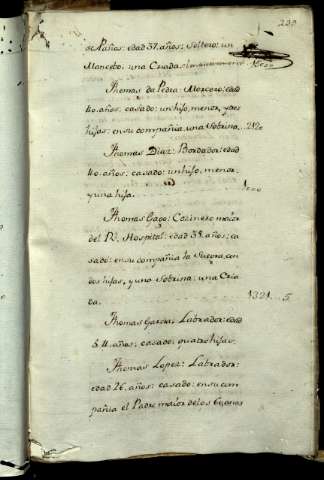 230
de Paños: edad 37, años: Soltero: un
Mancebo: una Criada
Thomas de Pedra: Mercero: edad
40, años: casado: un hijo, menor, y tres
hijas: en su compañia, una Sobrina 212
Thomas Diaz: Bordador: edad
40, años: casado: un hijo, menor,
y una hija.
Thomas Gago: Cozinero maior
del Rl. Hospital: edad 38, años: ca
sado: en su compañia la Suegra, con
dos hijas, y una Sobrina: una Cria
da. 1321..5
Thomas Garcia: Labrador: edad
54, años: casado: quatro hijas.
Thomas Lopez: Labrador:
edad 26, años: casado: en su com
pañia el Padre maior de los 60, anos